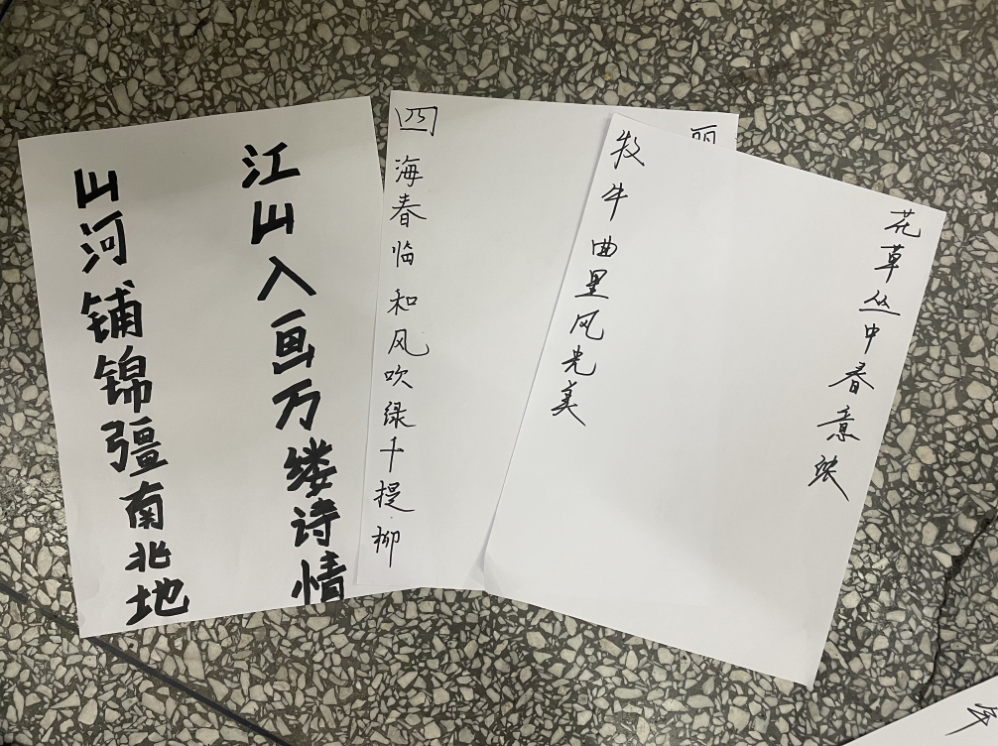 江山入画万缕诗情
山河铺锦彊南北地
丽
四海春临和风吹绿十提柳
花草丛中春意
牧牛曲里风光美